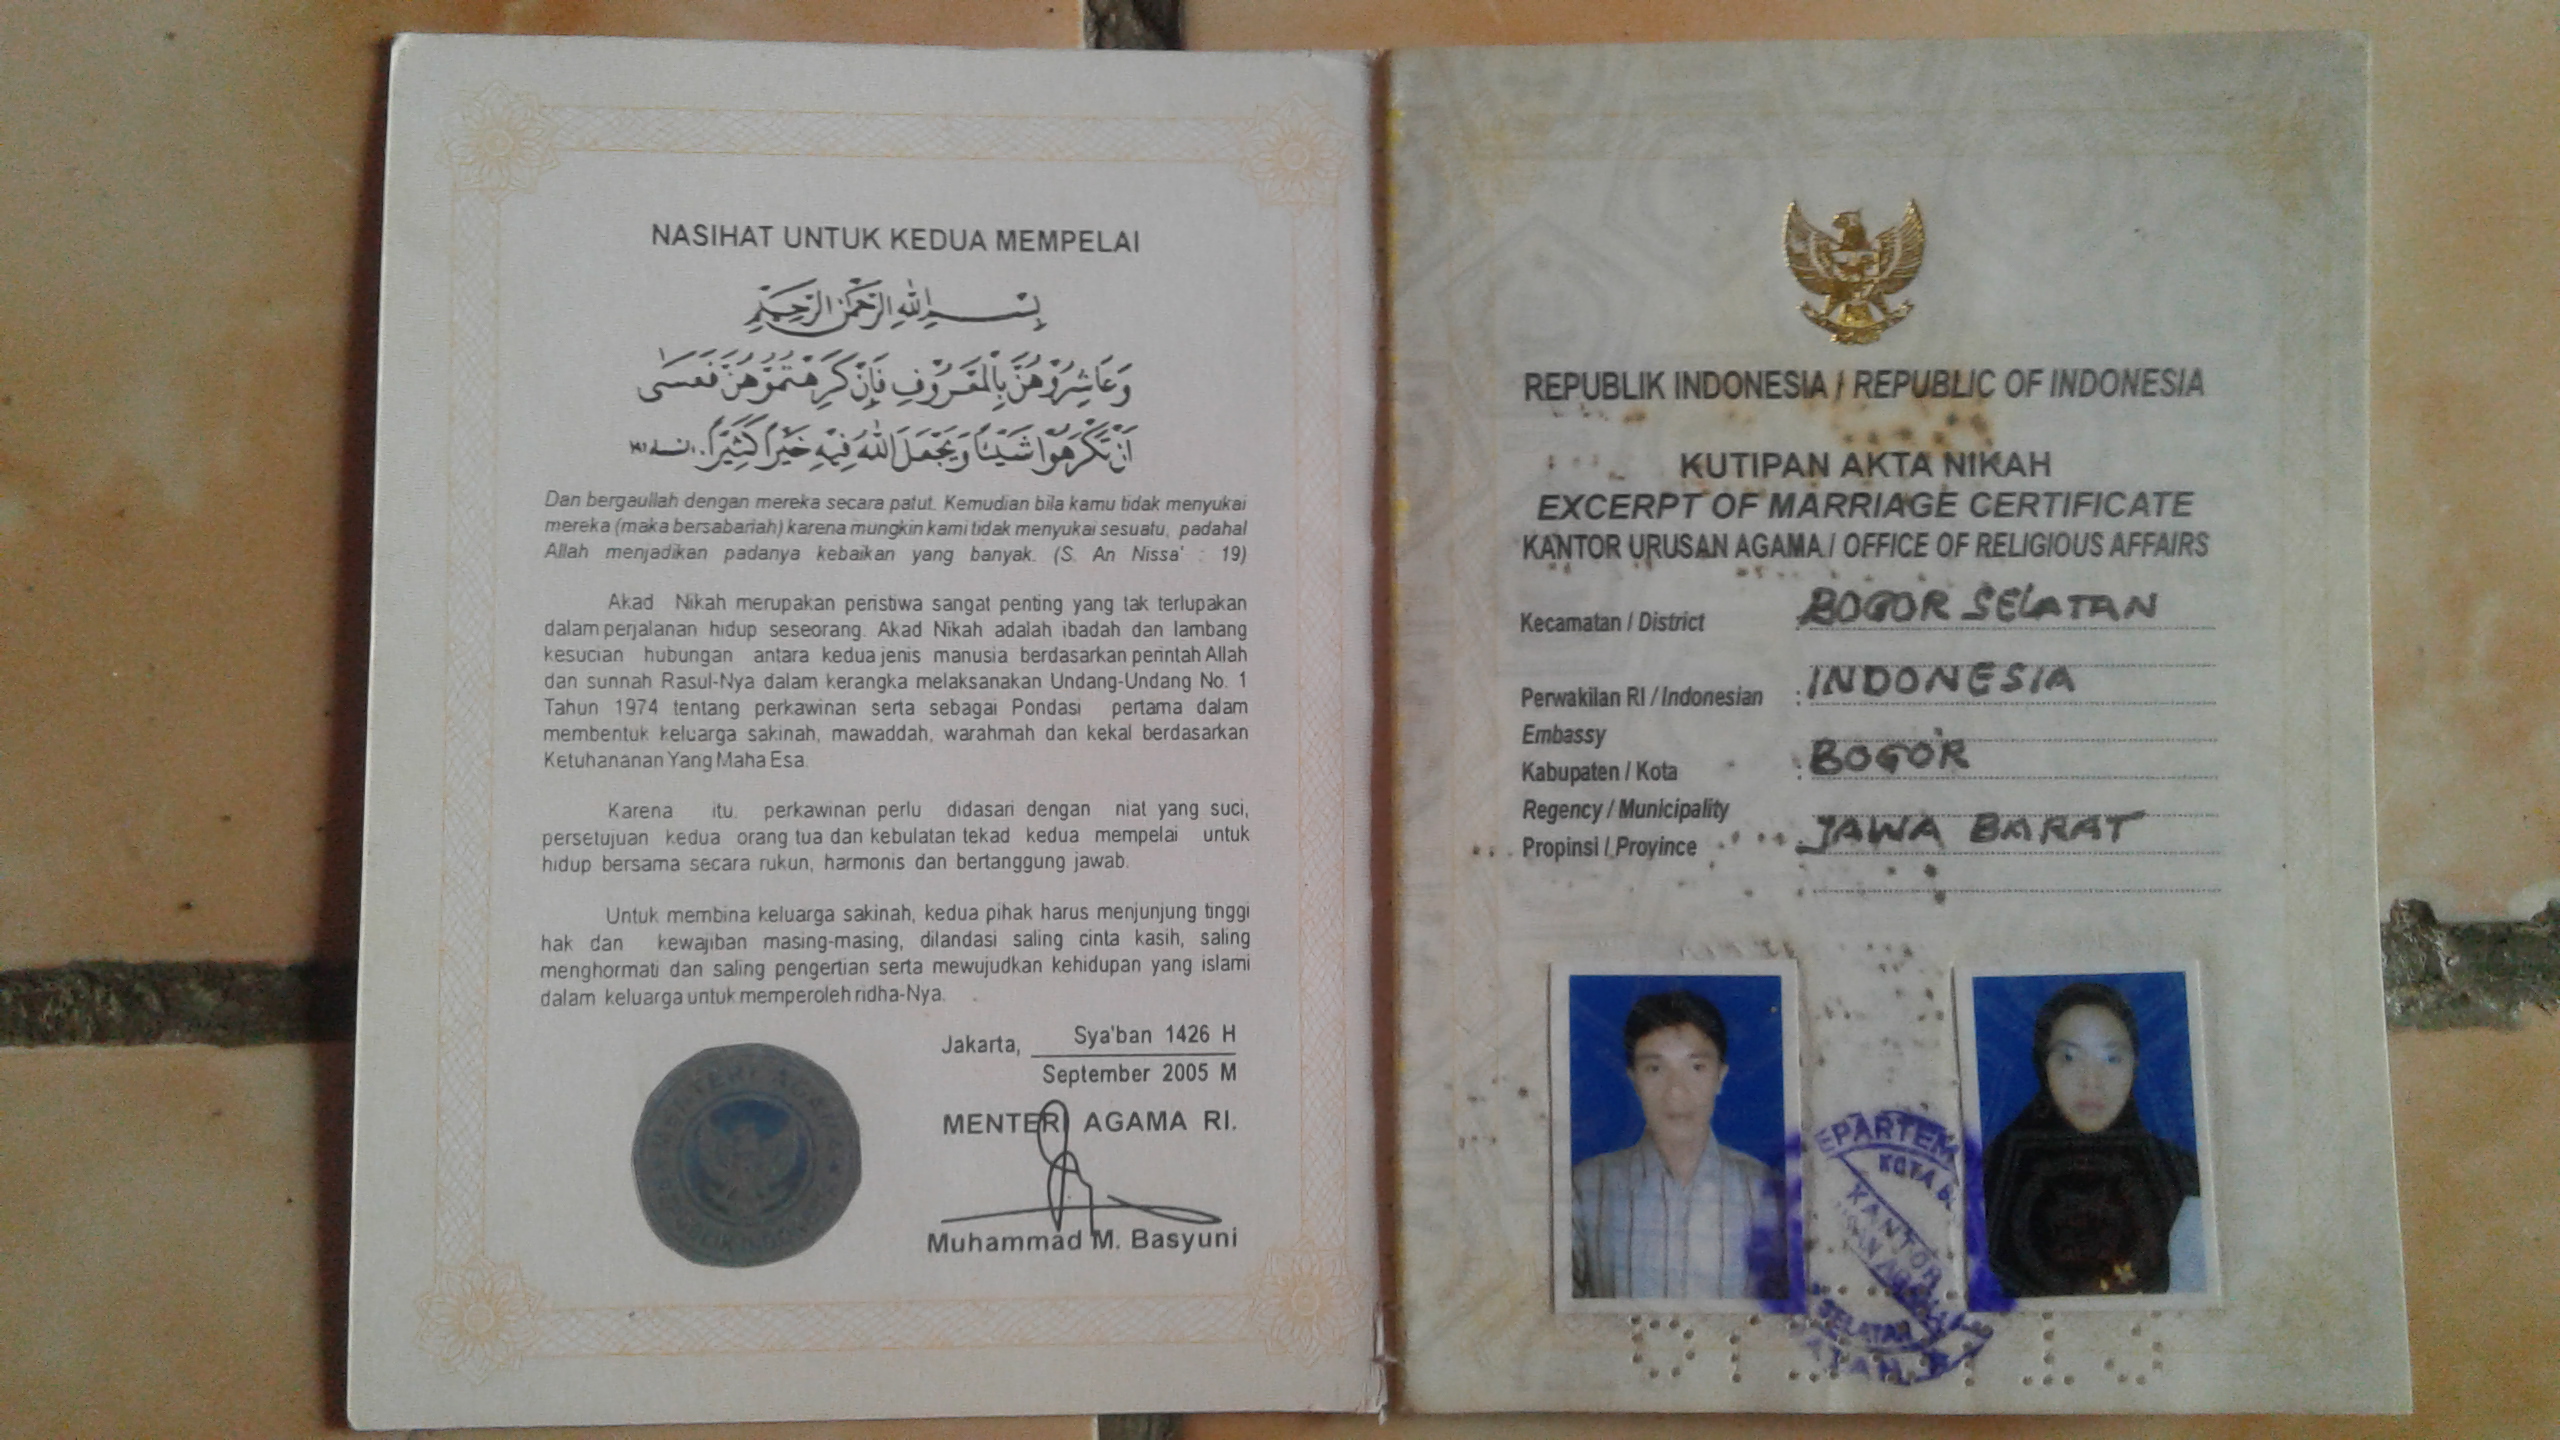 NASIHAT UNTUK KEDUA MEMPELAI
بِسْــــــمِ اللهِ الرَّحْمٰنِ الرَّحِيْمِ
وَعَاشِرُوْهُنَّ بِالْمَعْرُوْفِ فَاِنْ كَرِهْتُمُوْهُنَّ فَعَسٰى
اَنْ تَكْرَهُوْا شَيْئًا وَّيَجْعَلَ اللهُ فِيْهِ خَيْرًا كَثِيْرًا. النساء ١٩
Dan bergaullah dengan mereka secara patut. Kemudian bila kamu tidak menyukai
mereka (maka bersabarlah) karena mungkin kami tidak menyukai sesuatu, padahal
Allah menjadikan padanya kebaikan yang banyak. (S. An Nissa' : 19)
Akad Nikah merupakan peristiwa sangat penting yang tak terlupakan
dalam perjalanan hidup seseorang. Akad Nikah adalah ibadah dan lambang
kesucian hubungan antara kedua jenis manusia berdasarkan perintah Allah
dan sunnah Rasul-Nya dalam kerangka melaksanakan Undang-Undang No. 1
Tahun 1974 tentang perkawinan serta sebagai Pondasi pertama dalam
membentuk keluarga sakinah, mawaddah, warahmah dan kekal berdasarkan
Ketuhananan Yang Maha Esa.
Karena itu. perkawinan perlu didasari dengan niat yang suci,
persetujuan kedua orang tua dan kebulatan tekad kedua mempelai untuk
hidup bersama secara rukun, harmonis dan bertanggung jawab.
Untuk membina keluarga sakinah, kedua pihak harus menjunjung tinggi
hak dan kewajiban masing-masing, dilandasi saling cinta kasih, saling
menghormati dan saling pengertian serta mewujudkan kehidupan yang islami
dalam keluarga untuk memperoleh ridha-Nya.
Jakarta, Sya'ban 1426 H
September 2005 M
MENTERI AGAMA RI.
Muhammad M. Basyuni
MENTERI AGAMA
REPUBLIK INDONESIA
REPUBLIK INDONESIA / REPUBLIC OF INDONESIA
KUTIPAN AKTA NIKAH
EXCERPT OF MARRIAGE CERTIFICATE
KANTOR URUSAN AGAMA / OFFICE OF RELIGIOUS AFFAIRS
Kecamatan / District : BOGOR SELATAN
Perwakilan RI / Indonesian : INDONESIA
Embassy
Kabupaten / Kota : BOGOR
Regency / Municipality
Propinsi / Province : JAWA BARAT
EPARTEM
KOTA B
KANTOR
SELATAN